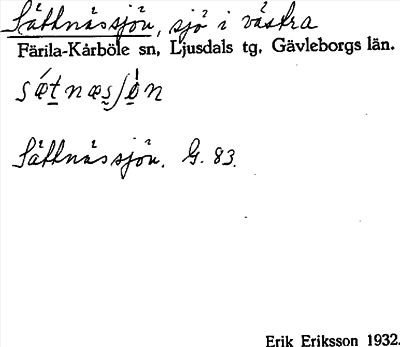 Sättnässjön, sjö i västra
Färila-Kårböle sn, Ljusdals tg, Gävleborgs län.
Sättnässjön. G. 83.
Erik Eriksson 1932.